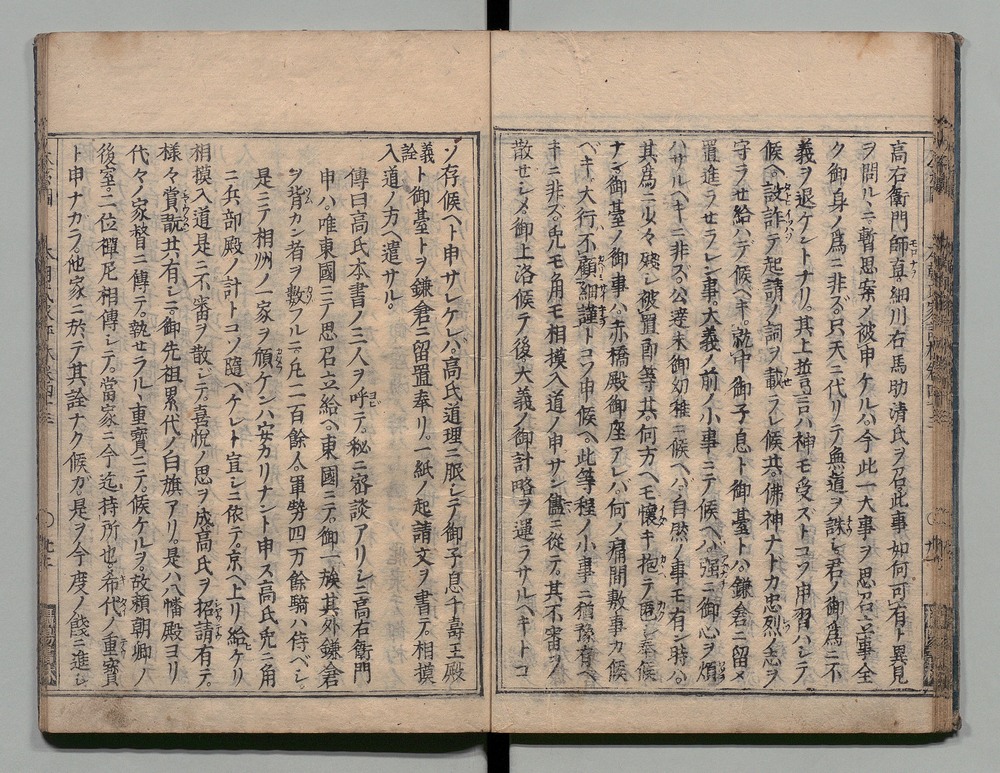 高右衞門師直細川右馬助清氏ヲ召此事如何可有ト異見
ヲ問ルヽニ暫思案ノ被申ケルハ今此一大事ヲ思召立事全
ク御身ノ爲ニ非ズ只天ニ代リテ無道ヲ誅シ君ノ御爲ニ不
義ヲ退ケントナリ其上誓言ハ神モ受ストコソ申習ハシテ
候ヘ設詐テ起請ノ詞ヲ載ラレ候共佛神ナトカ忠烈ノ志ヲ
守ラせ給ハデ候ヘキ就中御子息ト御臺トハ鎌倉ニ留メ
置進ラせラレン事大義ノ前ノ小事ニテ候ヘハ強ニ御心ヲ煩
ハサルヘキニ非ズ公達未御幼稚ニ候ヘハ自然ノ事モ有ン時ハ
其爲ニ少々殘シ被置郎等共何方ヘモ懐キ抱テ匿シ奉候
ナン御臺ノ御事ハ赤橋殿御座アレバ何ノ痛間敷事カ候
ベキ大行不顧細謹トコソ申候ヘ此等程ノ小事ニ猶豫有ヘ
キニ非ズ兎モ角モ相摸入道ノ申サン儘ニ從テ其不審ヲ
散せシメ御上洛候テ後大義ノ御計略ヲ運ラサルヘキトコ
ソ存候ヘト申サレケレバ高氏道理ニ服シテ御子息千壽王殿
義詮ト御臺トヲ鎌倉ニ留置奉リ一紙ノ起請文ヲ書テ相摸
入道ノ方ヘ遣サル
傳曰高氏本書ノ三人ヲ呼テ秘ニ密談アリシニ高右衞門
申ハ唯東國ニテ思召立給ヘ東國ニテ御一族其外鎌倉
ヲ背カン者ヲ數フルニ凡二百餘人軍勢四万餘騎ハ侍ベシ
是ニテ相州ノ一家ヲ傾ケンハ安カリナント申ス高氏兎ニ角
ニ兵部殿ノ計トコソ隨ヘケレト宣シニ依テ京ヘ上リ給ケリ
相摸入道是ニ不審ヲ散シテ喜悦ノ思ヲ成高氏ヲ招請有テ
樣々賞翫共有シニ御先祖累代ノ白旗アリ是ハ八幡殿ヨリ
代々ノ家督ニ傳テ執せラルヽ重寶ニテ候ケルヲ故頼朝卿ノ
後室二位禪尼相傳シテ當家ニ今迄持所也希代ノ重寶
ト申ナカラ他家ニ於テ其詮ナク候カ是ヲ今度ノ餞ニ進シ